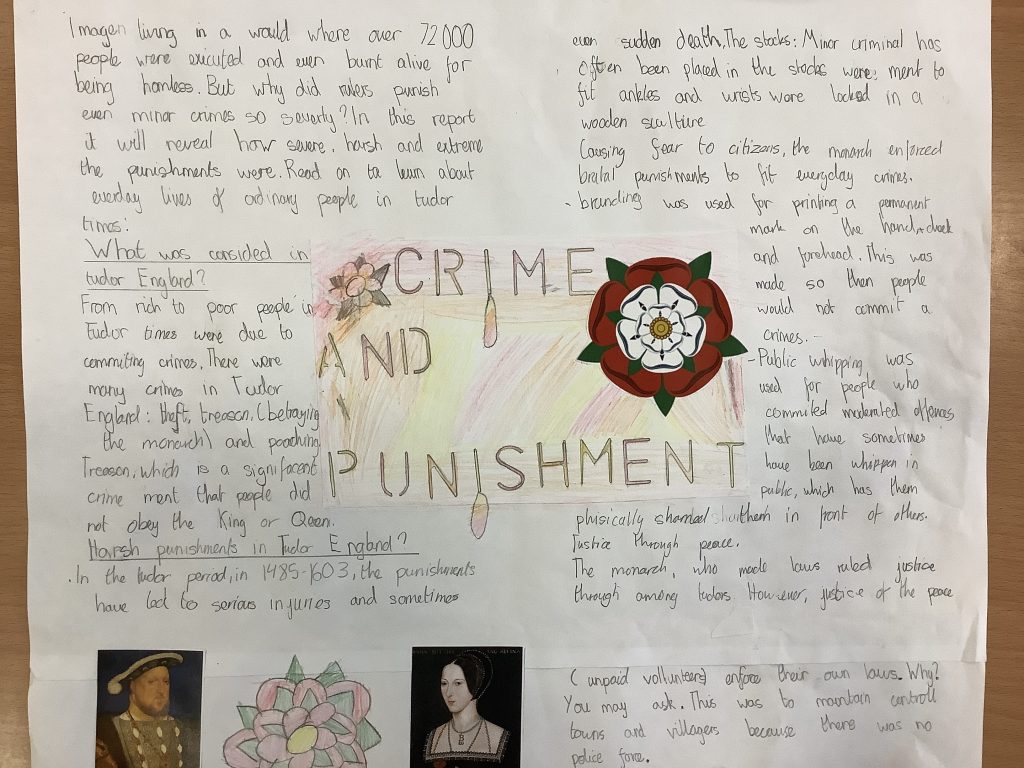 Imagen living in a would where over 72000
people were exicuted and even burnt alive for
being homless. But why did rulers punish
even minor crimes so severty? In this report
it will reveal how severe, harsh and extreme
the punishments were. Read on to learn about
everday lives of ordinary people in tudor
times:
What was consided in
tudor England?
From rich to poor people in
Tudor times were due to
commiting crimes. There were
many crimes in Tudor
England: theft, treason, (betraying
the monarch) and poaching
Treason, which is a significent
crime ment that people did
not obey the King or Qeen.
Harsh punishments in Tudor England?
. In the tudor period, in 1485-1603, the punishments
have led to serious injuries and sometimes
CRIME
AND
PUNISHMENT
even sudden death. The stocks: Minor criminal has
often been placed in the stocks were; ment to
fit ankles and wrists were locked in a
wooden sculture
Causing fear to citizans, the monarch enforced
brutal punishments to fit everyday crimes.
- branding was used for printing a permanent
mark on the hand,
and forehead. This was
made so then people
would not commit a
crimes. -
- Public whipping was
used for people who
commited moderated offences
that have sometimes
have been whippen in
public, which has them
phisically shamed them in front of others.
Justice through peace.
The monarch, who made laws ruled justice
through among tudors. However, justice of the peace
( unpaid vollunteers) enforce their own laws. Why?
You may ask. This was to maintain controll
towns and villagers because there was no
police force.